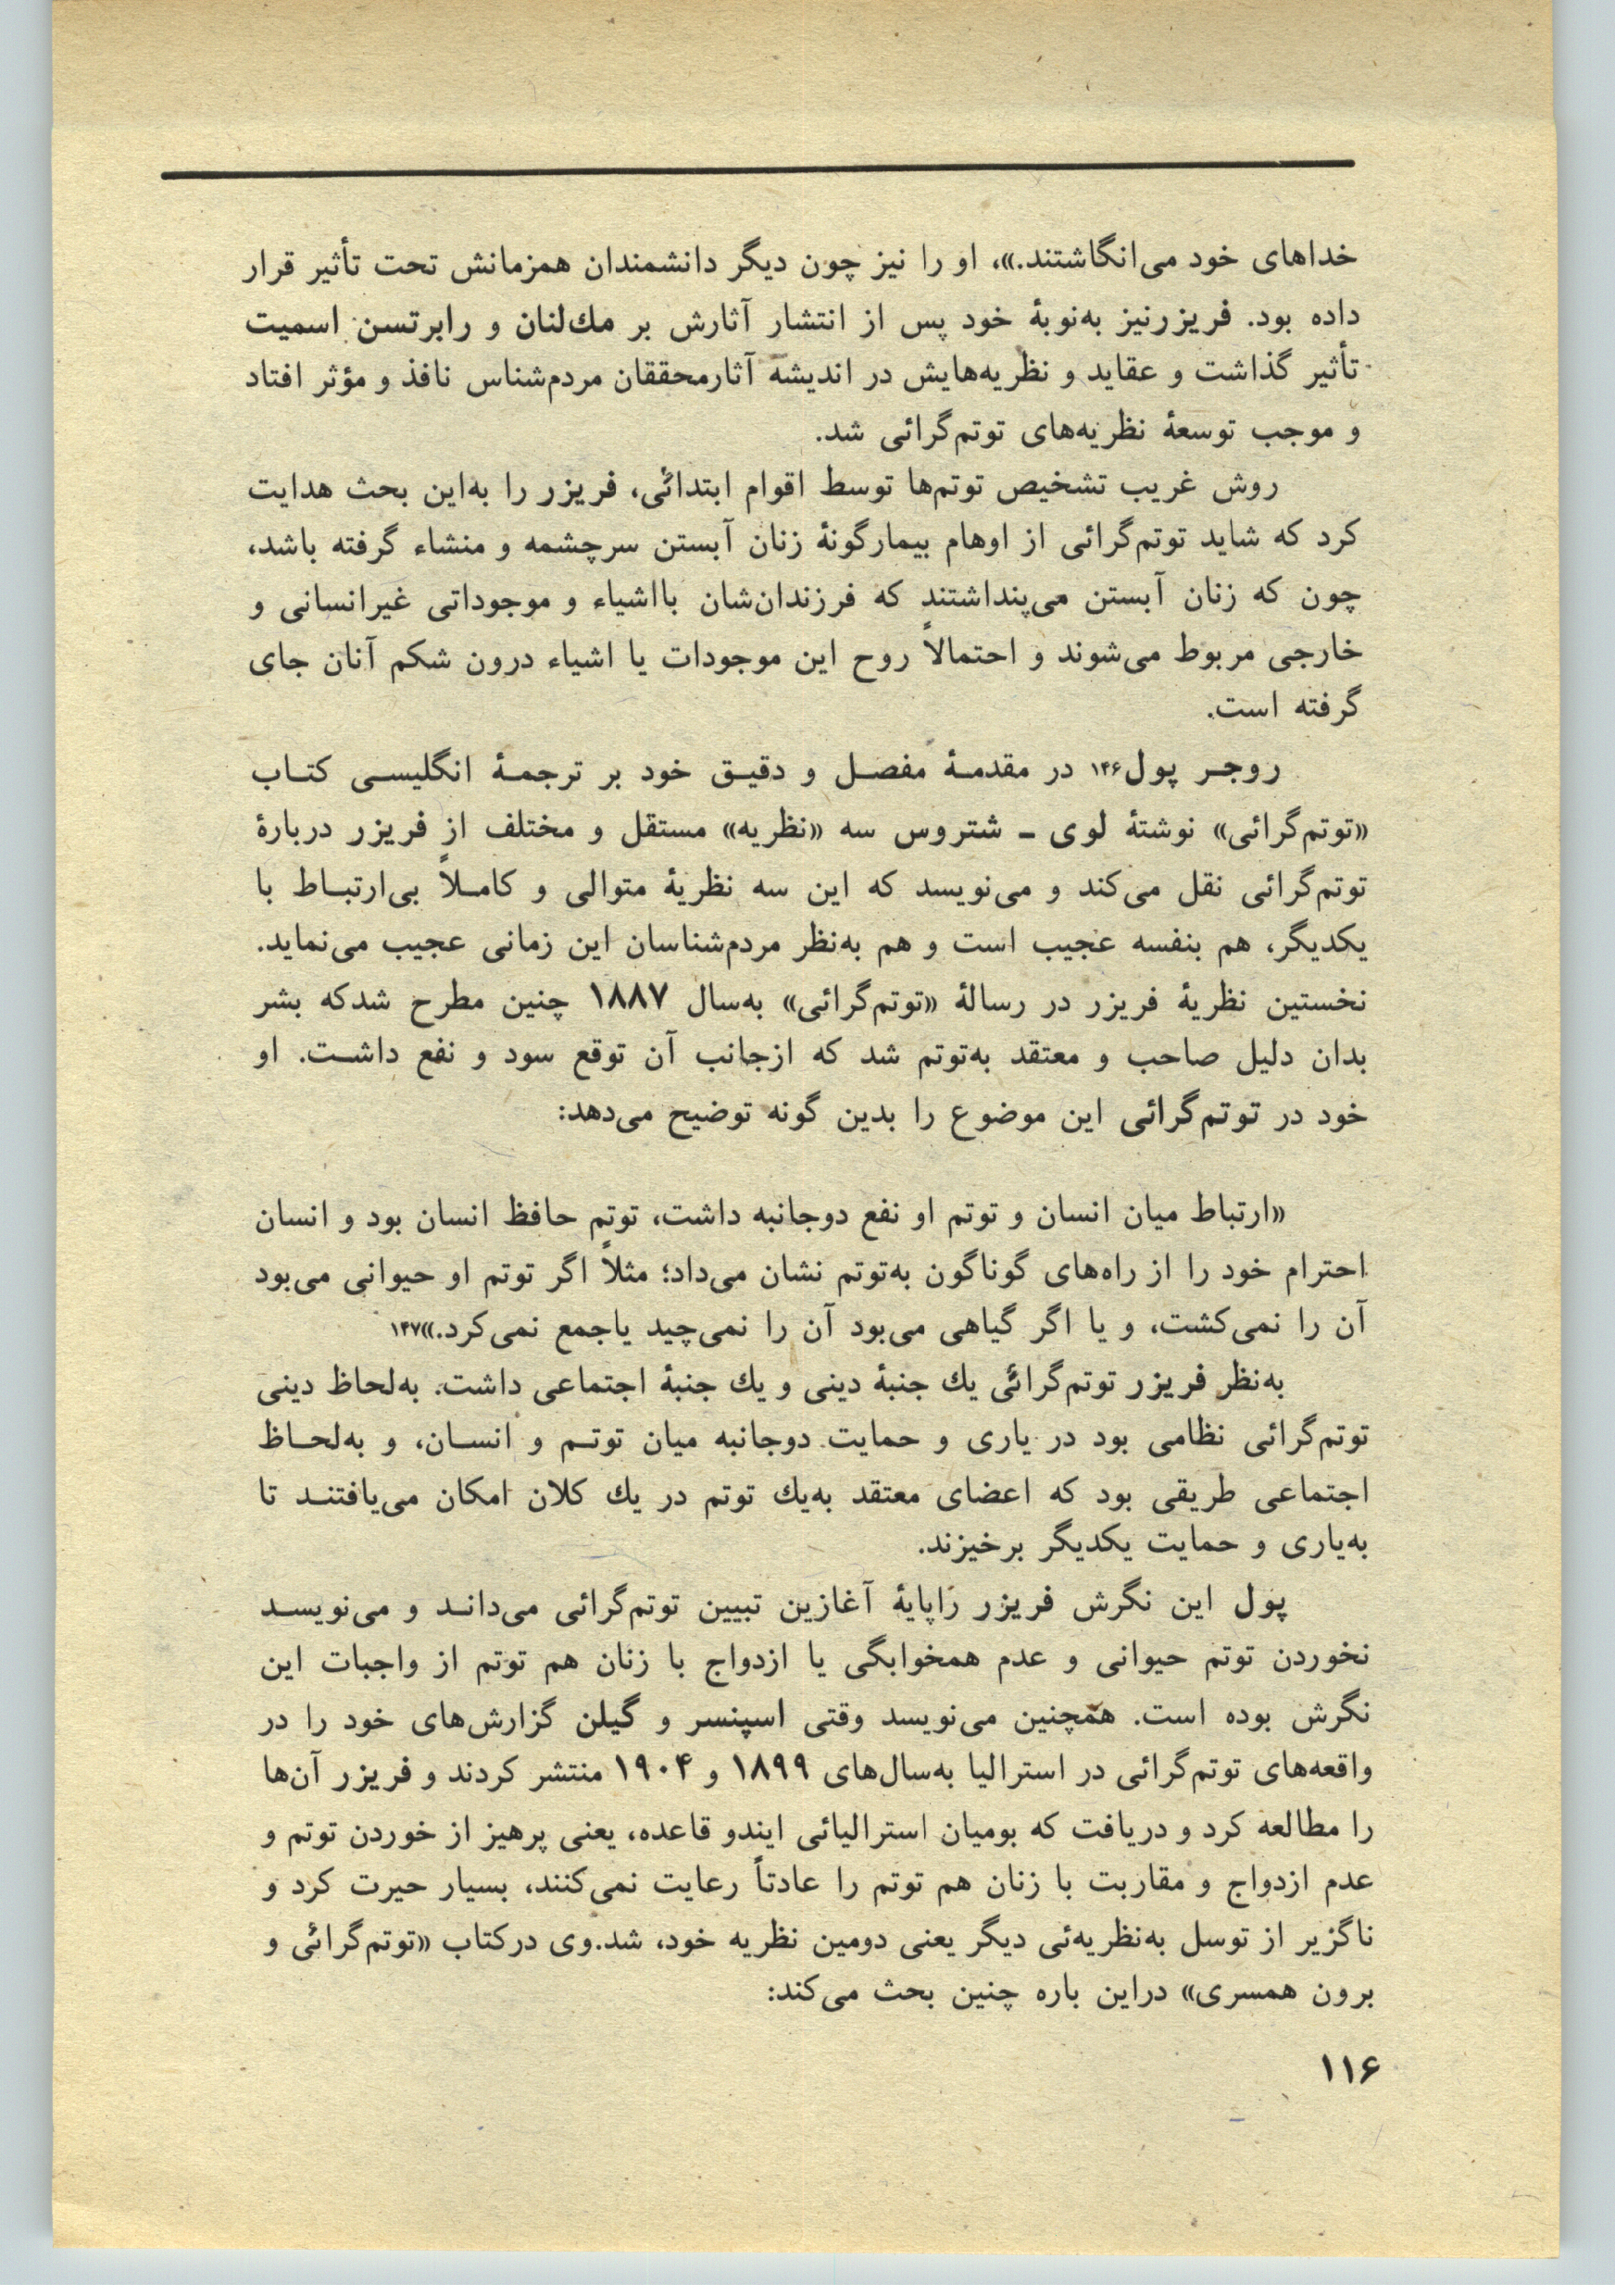 خداهای خود می‌انگاشتند.»، او را نیز چون دیگر دانشمندان همزمانش تحت تأثیر قرار
داده بود. فریزرنیز به‌نوبهٔ خود پس از انتشار آثارش بر مك‌لنان و رابرتسن اسمیت
تأثیر گذاشت و عقاید و نظریه‌هایش در اندیشهٔ آثارمحققان مردم‌شناس نافذ و مؤثر افتاد
و موجب توسعهٔ نظریه‌های توتم‌گرائی شد.
روش غریب تشخیص توتم‌ها توسط اقوام ابتدائی، فریزر را به‌این بحث هدایت
کرد که شاید توتم‌گرائی از اوهام بیمارگونهٔ زنان آبستن سرچشمه و منشاء گرفته باشد،
چون که زنان آبستن می‌پنداشتند که فرزندان‌شان بااشیاء و موجوداتی غیرانسانی و
خارجی مربوط می‌شوند و احتمالاً روح این موجودات یا اشیاء درون شکم آنان جای
گرفته است.
روجر پول۱۴۶ در مقدمهٔ مفصل و دقیق خود بر ترجمهٔ انگلیسی کتاب
«توتم‌گرائی» نوشتهٔ لوی ـ شتروس سه «نظریه» مستقل و مختلف از فریزر دربارهٔ
توتم‌گرائی نقل می‌کند و می‌نویسد که این سه نظریهٔ متوالی و کاملاً بی‌ارتباط با
یکدیگر، هم بنفسه عجیب است و هم به‌نظر مردم‌شناسان این زمانی عجیب می‌نماید.
نخستین نظریهٔ فریزر در رسالهٔ «توتم‌گرائی» به‌سال ۱۸۸۷ چنین مطرح شدکه بشر
بدان دلیل صاحب و معتقد به‌توتم شد که ازجانب آن توقع سود و نفع داشت. او
خود در توتم‌گرائی این موضوع را بدین گونه توضیح می‌دهد:
«ارتباط میان انسان و توتم او نفع دوجانبه داشت، توتم حافظ انسان بود و انسان
احترام خود را از راه‌های گوناگون به‌توتم نشان می‌داد؛ مثلاً اگر توتم او حیوانی می‌بود
آن را نمی‌کشت، و یا اگر گیاهی می‌بود آن را نمی‌چید یاجمع نمی‌کرد.»۱۴۷
به‌نظر فریزر توتم‌گرائی یك جنبهٔ دینی و یك جنبهٔ اجتماعی داشت. به‌لحاظ دینی
توتم‌گرائی نظامی بود در یاری و حمایت دوجانبه میان توتم و انسان، و به‌لحاظ
اجتماعی طریقی بود که اعضای معتقد به‌یك توتم در یك کلان امکان می‌یافتند تا
به‌یاری و حمایت یکدیگر برخیزند.
پول این نگرش فریزر راپایهٔ آغازین تبیین توتم‌گرائی می‌داند و می‌نویسد
نخوردن توتم حیوانی و عدم همخوابگی یا ازدواج با زنان هم توتم از واجبات این
نگرش بوده است. همچنین می‌نویسد وقتی اسپنسر و گیلن گزارش‌های خود را در
واقعه‌های توتم‌گرائی در استرالیا به‌سال‌های ۱۸۹۹ و ۱۹۰۴ منتشر کردند و فریزر آن‌ها
را مطالعه کرد و دریافت که بومیان استرالیائی ایندو قاعده، یعنی پرهیز از خوردن توتم و
عدم ازدواج و مقاربت با زنان هم توتم را عادتاً رعایت نمی‌کنند، بسیار حیرت کرد و
ناگزیر از توسل به‌نظریه‌ئی دیگر یعنی دومین نظریه خود، شد.وی درکتاب «توتم‌گرائی و
برون همسری» دراین باره چنین بحث می‌کند:
۱۱۶